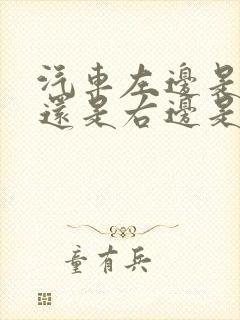 汽車左邊是
還是右邊是
童有兵